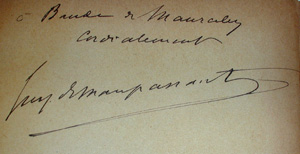 à Baude de Maurceley
Cordialement
Guy de Maupassant